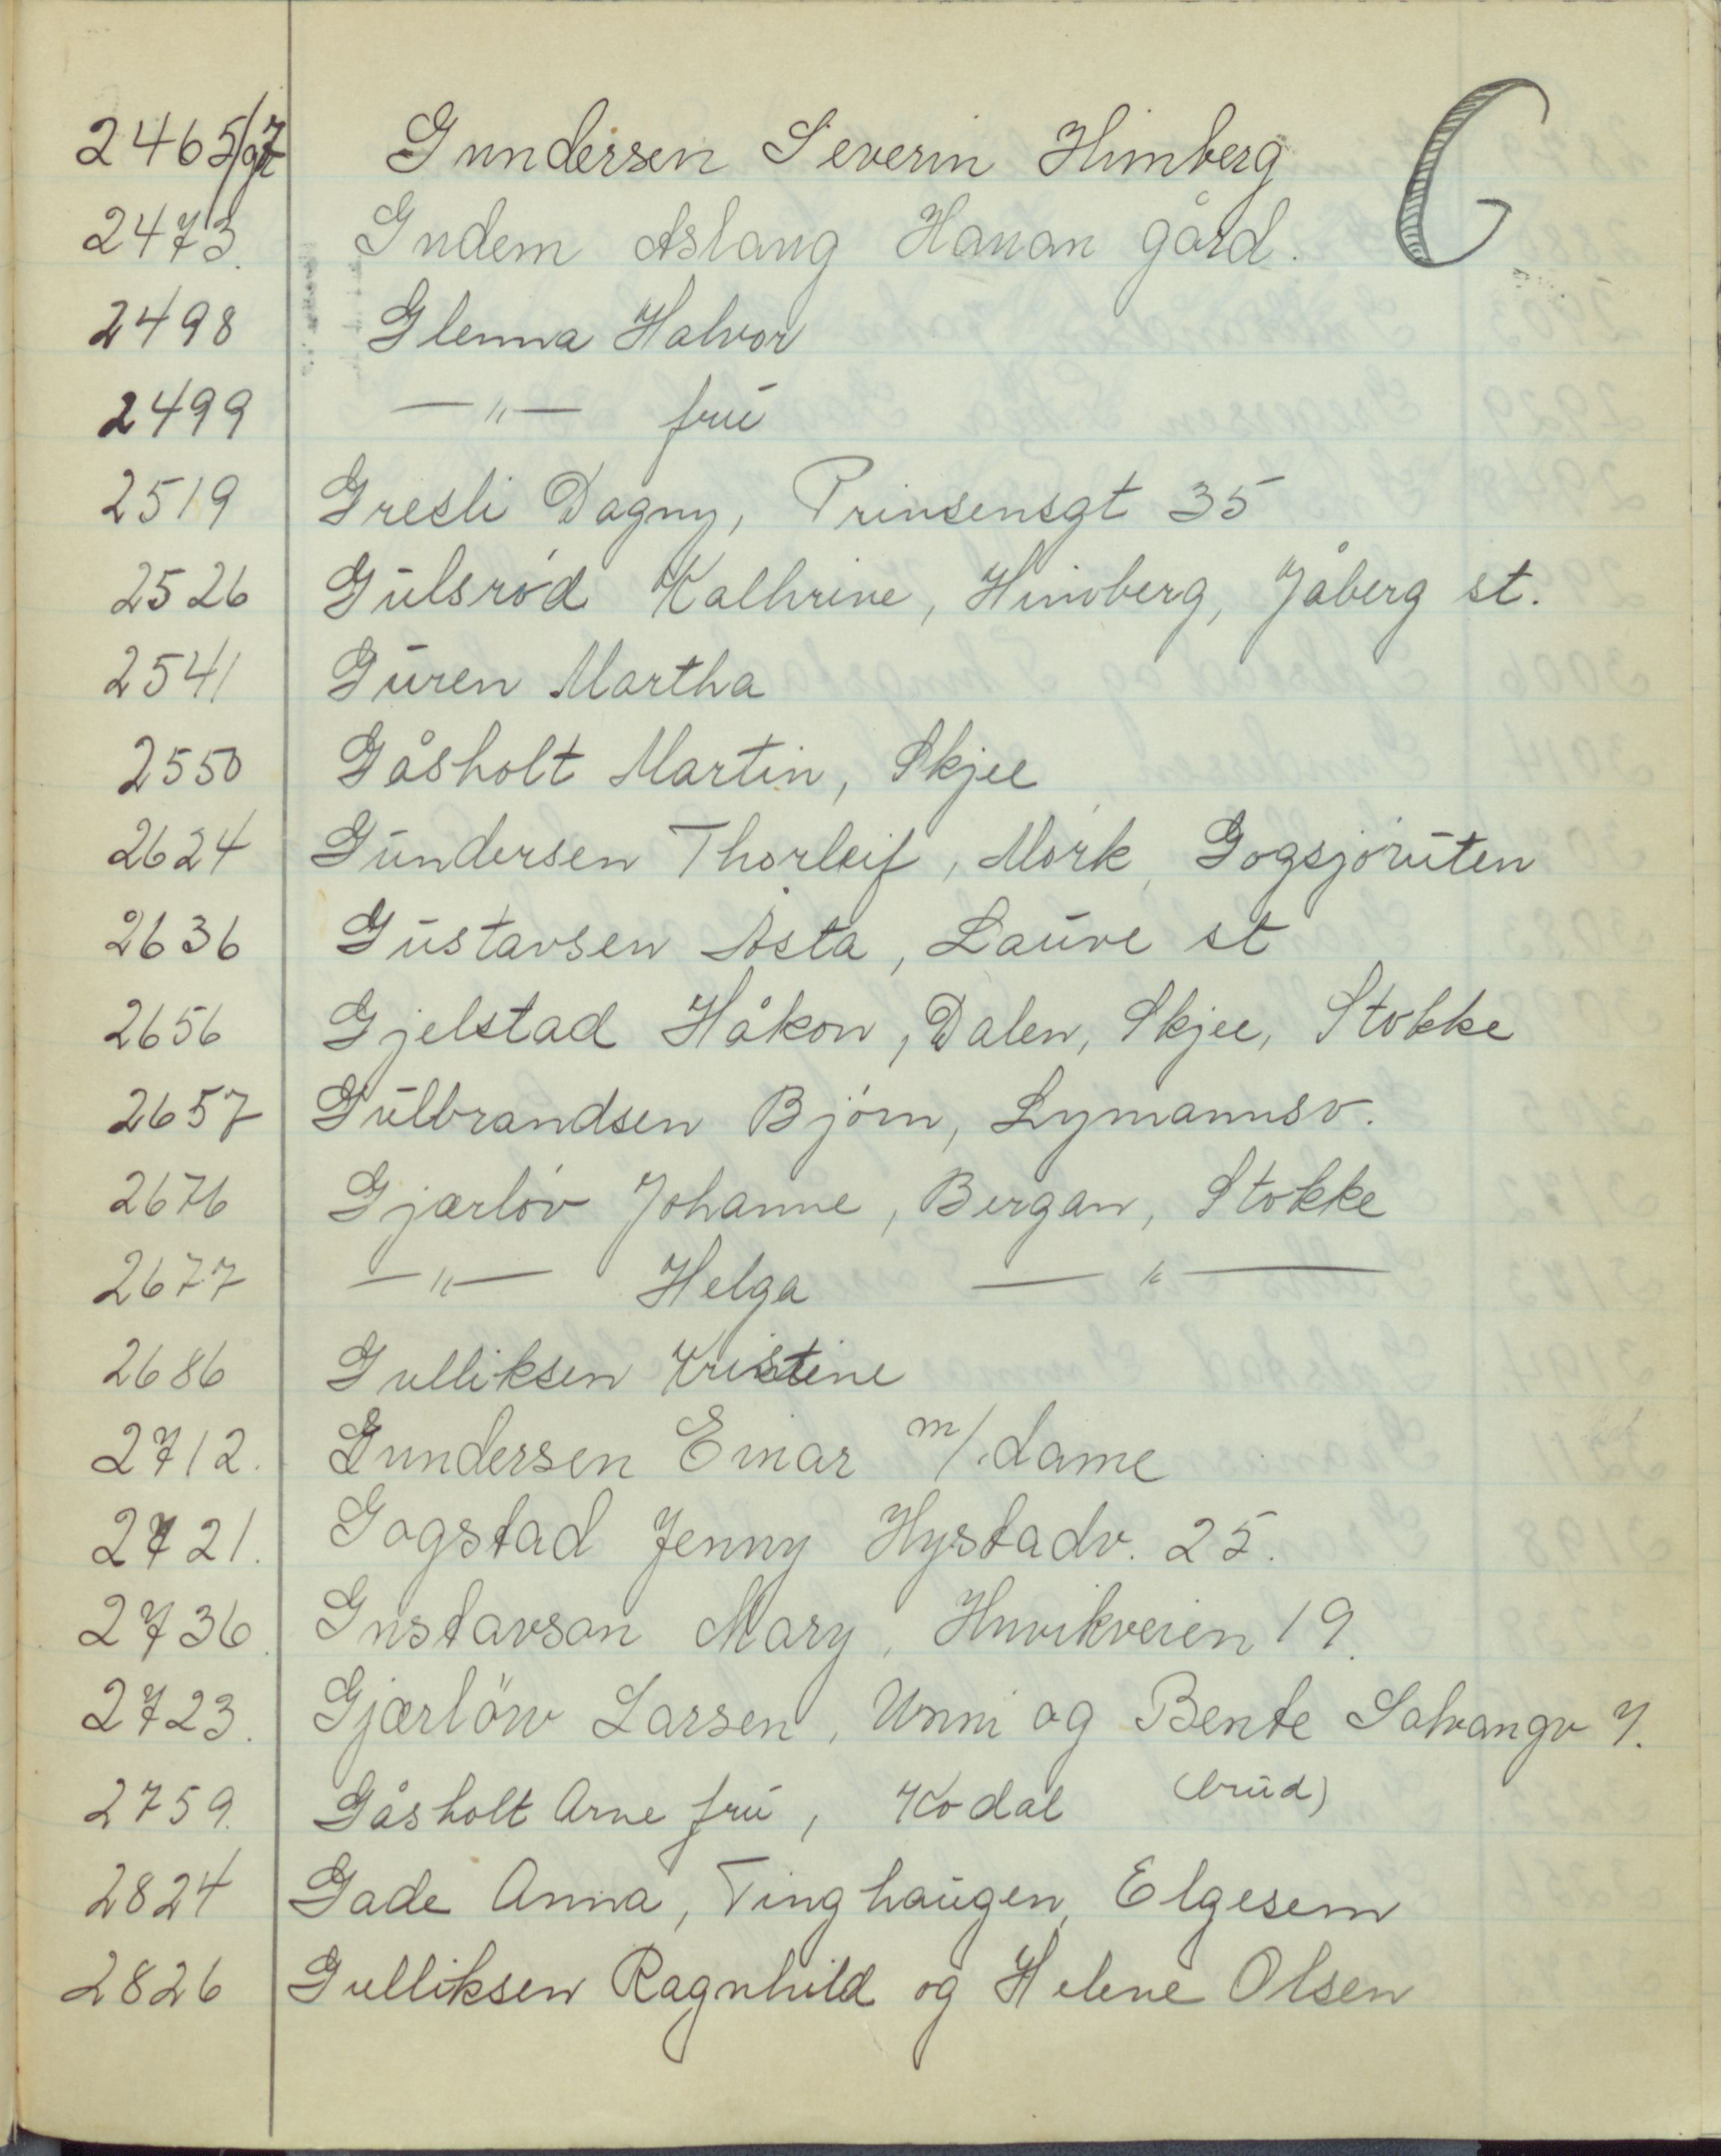 G
2465/97 Gundersen Severin Himberg
2473. Gudem Aslaug Hauan gård.
2498 Glenna Halvor
2499 —"— frū
2519 Gresli Dagny, Prinsensgt 35
2526 Gūlsrød Kathrine, Himberg, Jåberg st.
2541 Gūren Martha
2550 Gåsholt Martin, Skjee
2624 Gūndersen Thorleif, Mørk, Gogsjørūten
2636 Gūstavsen Åsta, Laūve st
2656 Gjelstad Håkon, Dalen, Skjee, Stokke
2657 Gūlbrandsen Bjørn, Lymannsv.
2676 Gjærløv Johanne, Bergan, Stokke
2677 —"— Helga —"—
2686 Gulliksen Kristine
2712. Gundersen Einar m/dame
2721. Gogstad Jenny Hystadv. 25.
2736. Gustavson Mary, Huvikveien 19.
2723. Gjærlöw Larsen, Unni og Bente Solvangv 7.
2759. Gåsholt Arne frū, Kodal (brūd)
2824 Gade Anna, Tinghaūgen, Elgesem
2826 Gulliksen Ragnhild og Helene Olsen